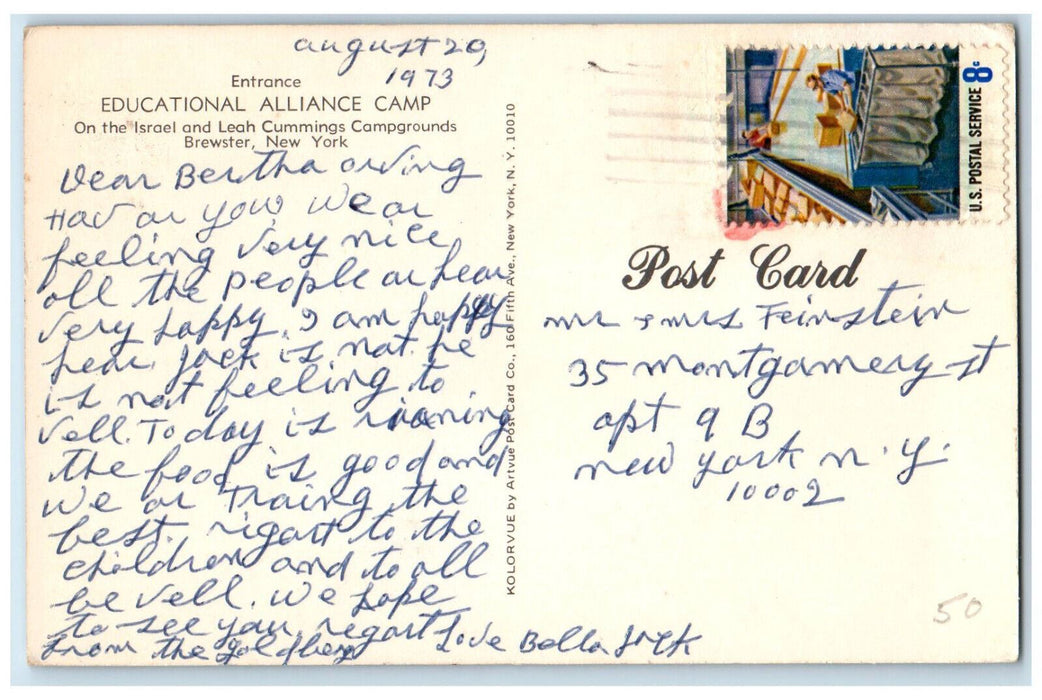 august 20,
1973
Entrance
EDUCATIONAL ALLIANCE CAMP
On the Israel and Leah Cummings Campgrounds
Brewster, New York
Dear Bertha orving
Hav ar you We ar
feeling very nice
all the people ar hear
very happy. I am happy
hear. Jack is not. he
is not feeling to
vell. To day is raining
the food is good and
we ar Traing the
best. rigart to the
children and to all
be vell. We hope
to see you. regart Love Bella Jack
from the goldberg
KOLORVUE by Artvue Post Card Co., 160 Fifth Ave., New York, N. Y. 10010
U.S. POSTAL SERVICE 8c
Post Card
mr & mrs Feinstein
35 montgomery st
apt 9 B
new york n. y.
10002
50